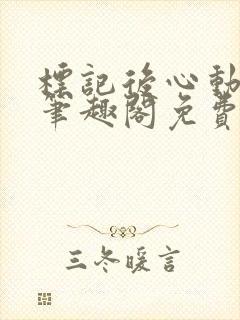 標記後心動
筆趣閣免費
三冬暖言